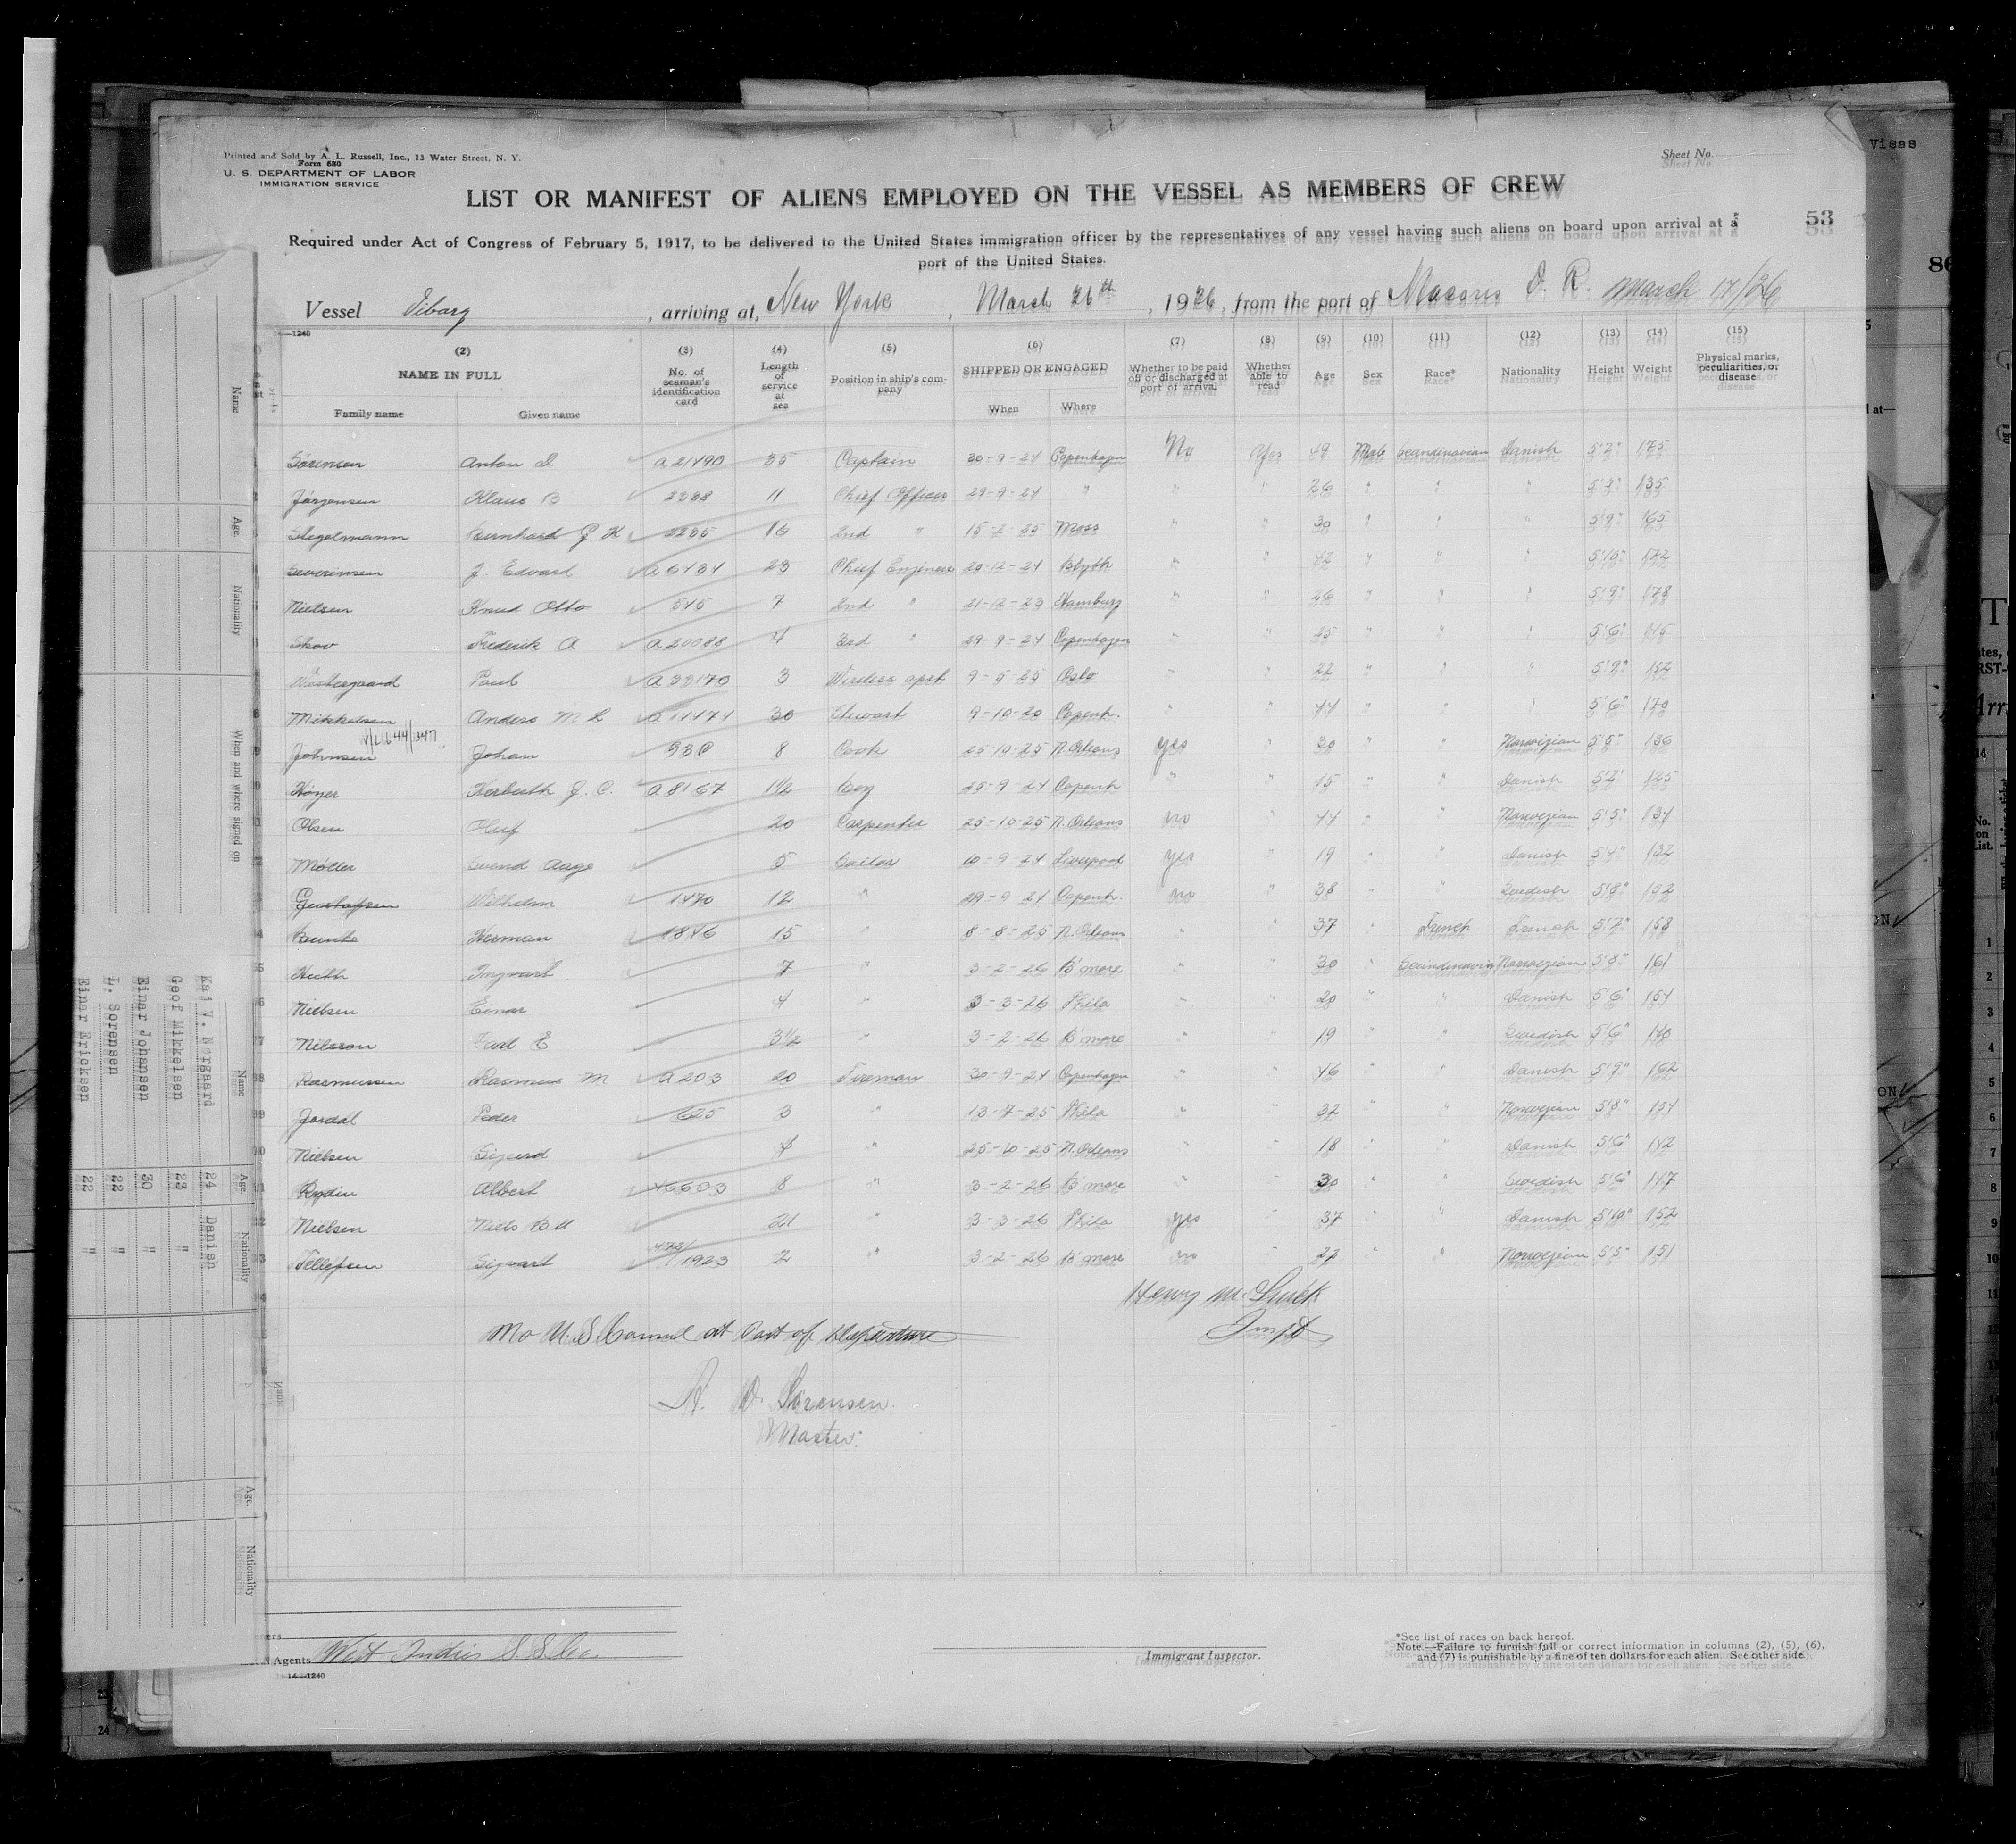 Printed and Sold by A. L. Russell, Inc., 13 Water Street, N. Y.
Form 680
U. S. DEPARTMENT OF LABOR
IMMIGRATION SERVICE
Sheet No.
Visas
LIST OR MANIFEST OF ALIENS EMPLOYED ON THE VESSEL AS MEMBERS OF CREW
53
Required under Act of Congress of February 5, 1917, to be delivered to the United States immigration officer by the representatives of any vessel having such aliens on board upon arrival at a
port of the United States.
Vessel Viborg, arriving at New York, March 26th, 1926, from the port of Macoris D. R. March 17/26
14—1240
(2) (3) (4) (5) (6) (7) (8) (9) (10) (11) (12) (13) (14) (15)
NAME IN FULL No. of seaman's identification card Length of service at sea Position in ship's company SHIPPED OR ENGAGED Whether to be paid off or discharged at port of arrival Whether able to read Age Sex Race* Nationality Height Weight Physical marks, peculiarities, or disease
Family name Given name When Where
Sörensen Anton D a 21490 35 Captain 30-9-24 Copenhagen No Yes 49 Male Scandinavian Danish 5'2" 175
Jörgensen Klaus B 2288 11 Chief Officer 29-9-24 " " " 26 " " " 5'9" 135
Stegelmann Bernhard J K 2235 16 2nd " 15-2-25 Moss " " 30 " " " 5'9" 165
Severinsen J. Edvard a 6434 23 Chief Engineer 20-12-24 Blyth " " 42 " " " 5'10" 172
Nielsen Knud Otto 545 7 2nd " 21-12-23 Hamburg " " 26 " " " 5'9" 178
Skov Frederik A a 20088 4 3rd " 29-9-24 Copenhagen " " 25 " " " 5'6" 115
Westergaard Poul a 22170 3 Wireless oprt. 9-5-25 Oslo " " 22 " " " 5'9" 152
Mikkelsen Anders M L a 14474 30 Stewart 9-10-20 Copenh. " " 44 " " " 5'6" 170
Johnsen Johan 930 8 Cook 25-10-25 N. Orleans yes " 30 " " Norwegian 5'5" 136
Höyer Herbuth J. C. a 8167 1½ Boy 25-9-24 Copenh " " 15 " " Danish 5'2" 125
Olsen Oluf 20 Carpenter 25-10-25 N. Orleans no " 44 " " Norwegian 5'5" 134
Möller Svend Aage 5 Sailor 10-9-24 Liverpool yes " 19 " " Danish 5'4" 132
Gustafsen Wilhelm 1470 12 " 29-9-24 Copenh. no " 38 " " Swedish 5'8" 152
Herman 1846 15 " 8-8-25 N. Orleans " " 37 " French French 5'7" 158
Huth Ingvart 7 " 3-2-26 B'more " " 30 " Scandinavian Norwegian 5'8" 161
Nielsen Einar 4 " 3-3-26 Phila " " 20 " " Danish 5'6" 154
Nilsson Karl E 3½ " 3-2-26 B'more " " 19 " " Swedish 5'6" 140
Rasmussen Rasmus M a 203 20 Fireman 30-9-24 Copenhagen " " 46 " " Danish 5'9" 162
Jordal Peder 625 3 " 13-7-25 Phila " " 32 " " Norwegian 5'8" 154
Nielsen Sigurd 4 " 25-10-25 N. Orleans " " 18 " " Danish 5'6" 142
Rydin Albert 46603 8 " 3-2-26 B'more " " 30 " " Swedish 5'6" 147
Nielsen Niels 21 " 3-3-26 Phila yes " 37 " " Danish 5'10" 152
Tellefsen Sigvart 1923 2 " 3-2-26 B'more no " 23 " " Norwegian 5'5" 151
No U. S. Consul at Port of Departure
A. D. Sörensen.
Master.
Agents West Indies S. S. Co.
14—1240
Immigrant Inspector.
*See list of races on back hereof.
Note.—Failure to furnish full or correct information in columns (2), (5), (6),
and (7) is punishable by a fine of ten dollars for each alien. See other side.
Name Age. Nationality When and where signed on
Name Age. Nationality
Kaj V. Norgaard 24 Danish
Geof Mikkelsen 23 "
Einar Johansen 30 "
L. Sorensen 22 "
Einar Ericksen 22 "
Name Age. Nationality